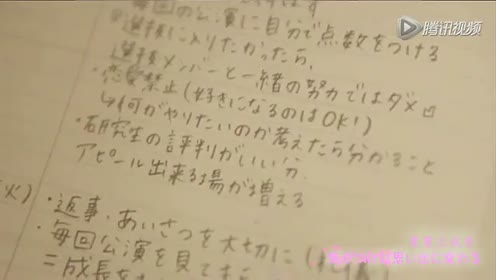 腾讯视频
・毎回の公演に自分で点数をつける
◎選抜に入りたかったら、
選抜メンバーと一緒の努力ではダメ
・恋愛禁止(好きになるのはOK!)
↳何がやりたいのか考えたら分かること
・研究生の評判がいい分、
アピール出来る場が増える
火)
・返事、あいさつを大切に(
・毎回公演を見てもら
=成長を